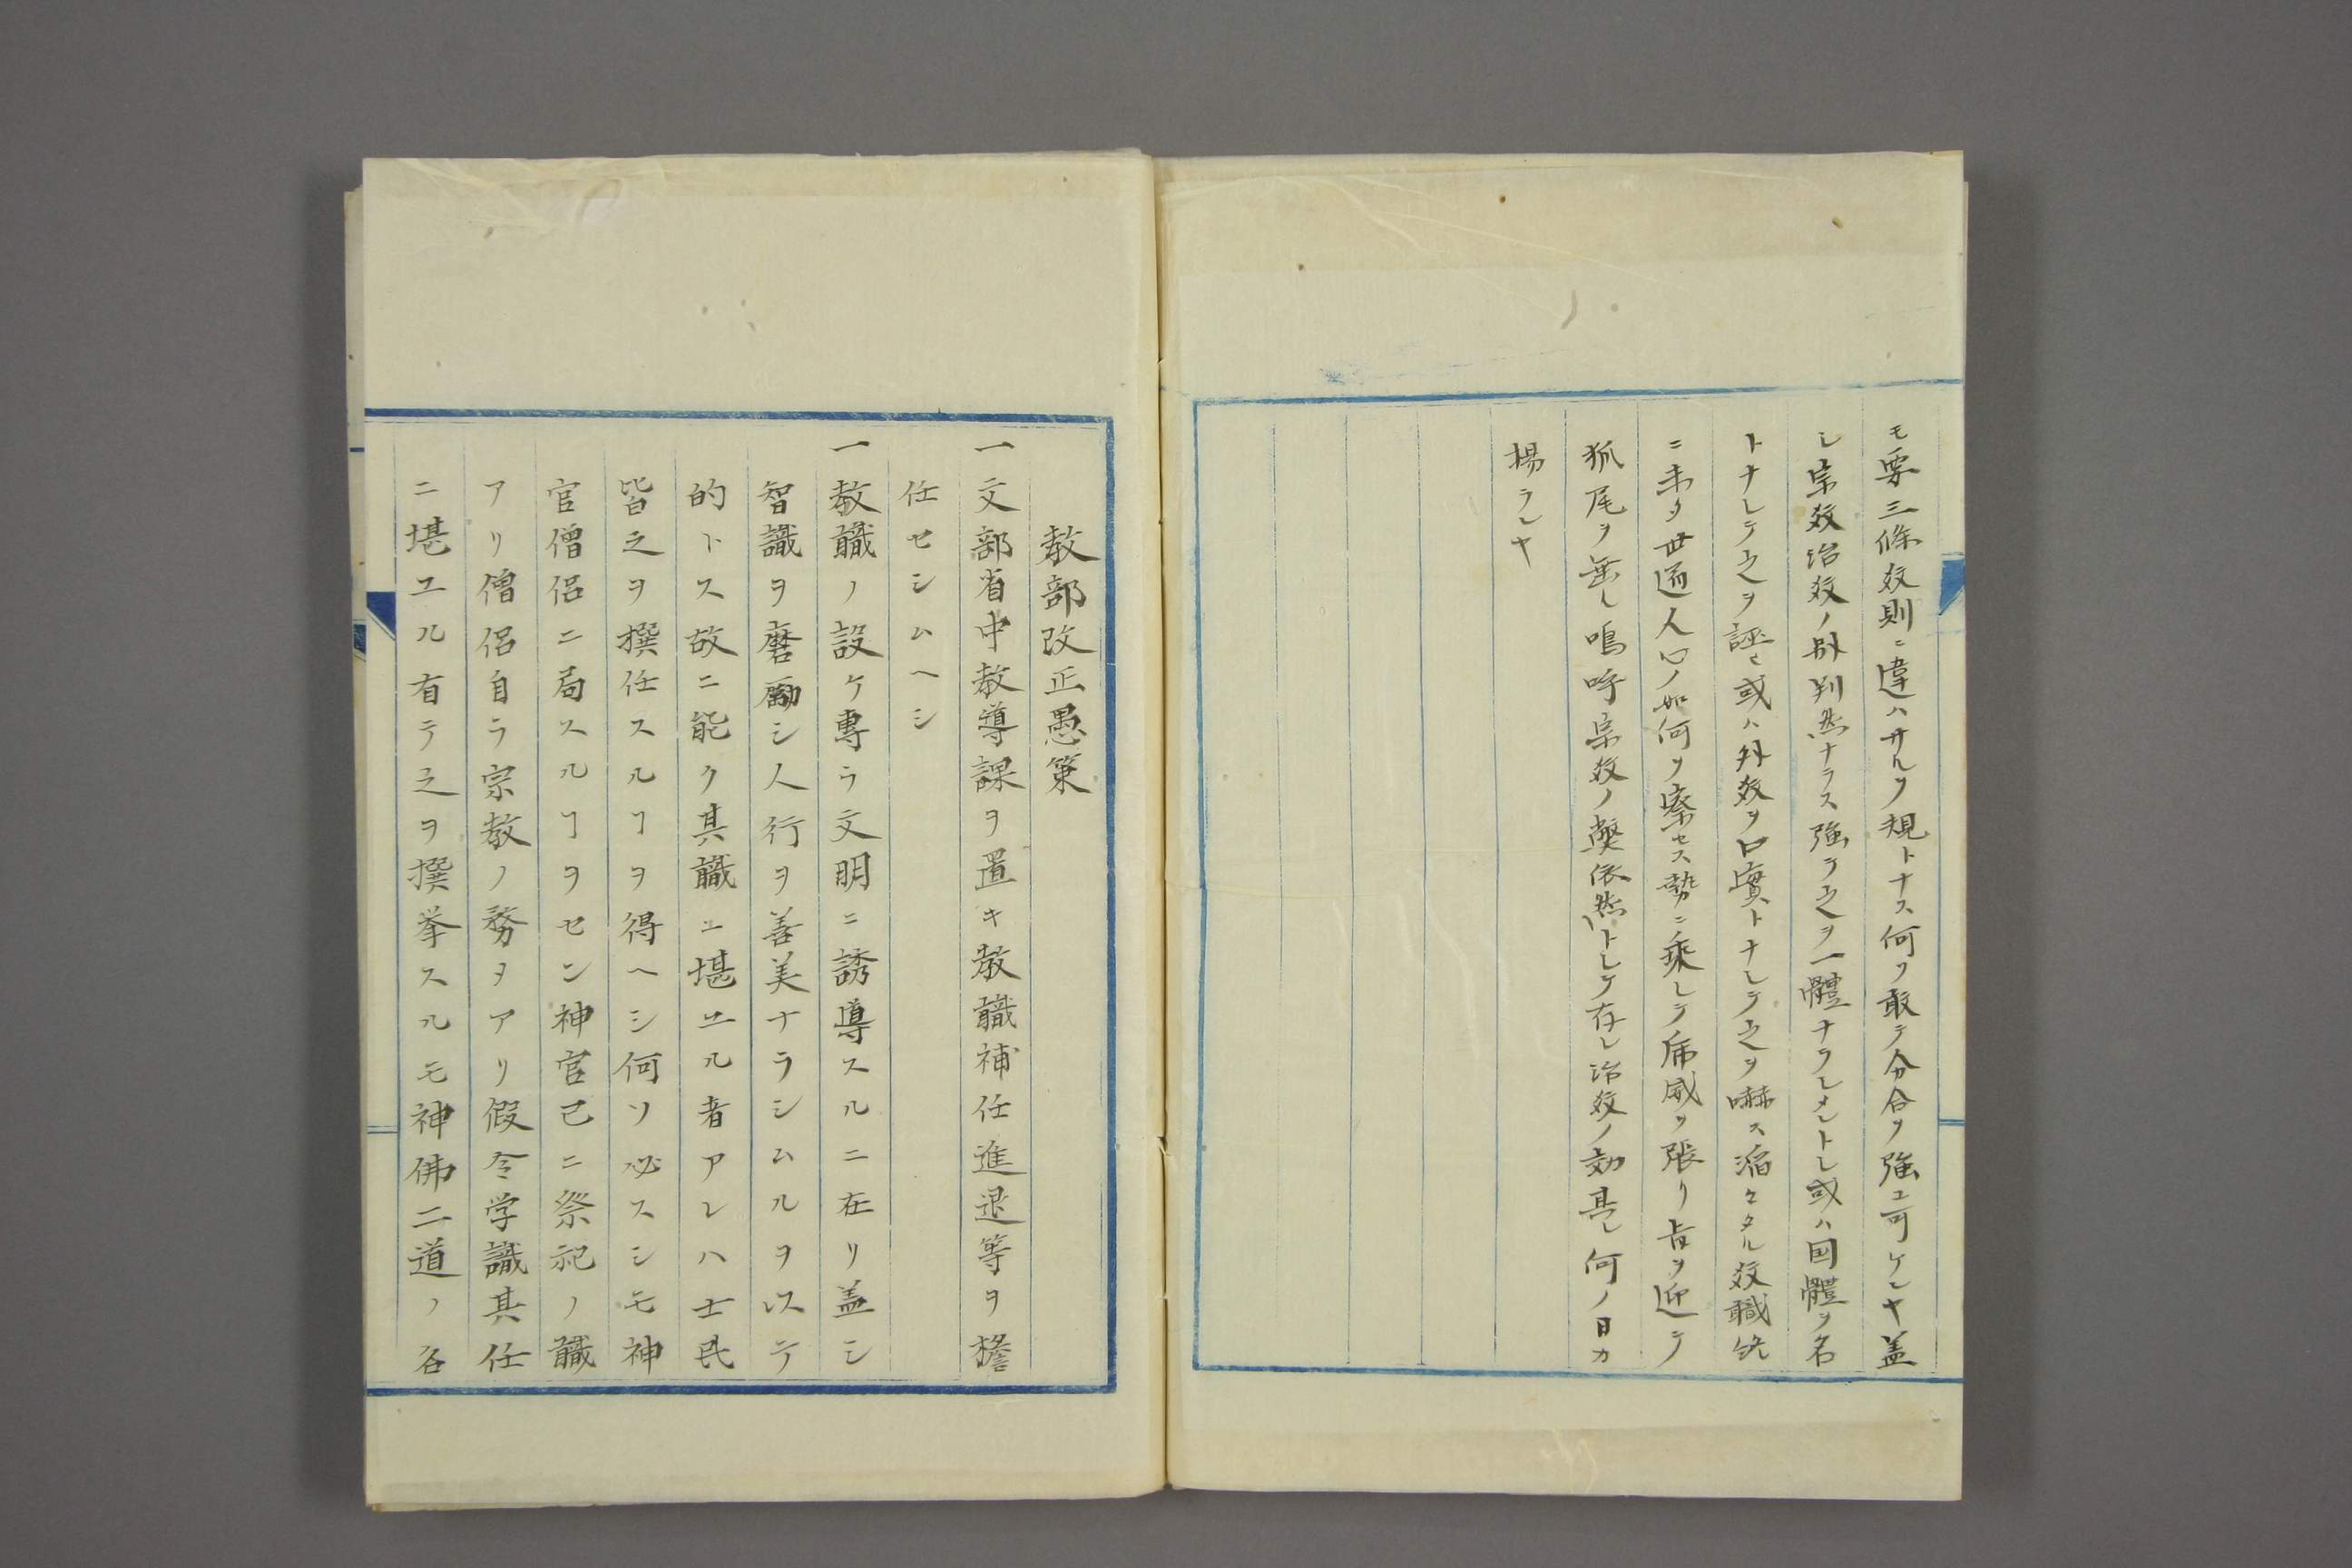 モ要三條教則ニ違ハサルヲ規トナス何ヲ敢テ分合ヲ強ユ可ケンヤ蓋
シ宗教治教ノ別判然ナラス強テ之ヲ一體ナラシメントシ或ハ国體ヲ名
トナシテ之ヲ誣ヒ或ハ外教ヲ口實トナシテ之ヲ嚇ス滔々タル教職
ニ未タ世運人心ノ如何ヲ察セス勢ニ乘シテ虎威ヲ張リ旨ヲ迎テ
狐尾ヲ垂ル嗚呼宗教ノ弊依然トシテ存シ治教ノ効某シ何ノ日カ
揚ランヤ
教部改正愚策
一文部省中教導課ヲ置キ教職補任進退等ヲ擔
任セシムヘシ
一教職ノ設ケ專ラ文明ニ誘導スルニ在リ盖シ
智識ヲ磨勵シ人行ヲ善美ナラシムルヲ以テ
的トス故ニ能ク其職ニ堪ユル者アレハ士民
皆之ヲ撰任スルヿヲ得ヘシ何ソ必スシモ神
官僧侶ニ局スルヿヲセン神官已ニ祭祀ノ職
アリ僧侶自ラ宗教ノ務ヲアリ假令学識其任
ニ堪ユル有テ之ヲ撰挙スルモ神佛二道ノ各